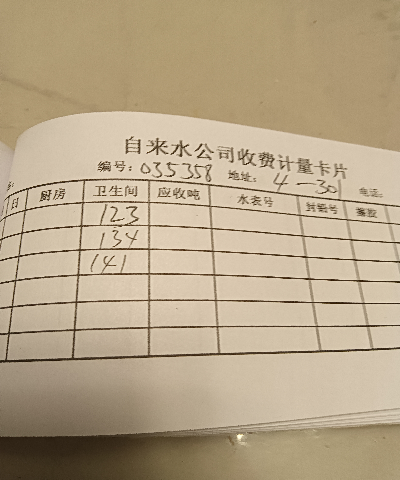 自来水公司收费计量卡片
编号: 035358 地址: 4-301 电话:
日 厨房 卫生间 应收吨 水表号 封铅号
123
134
141